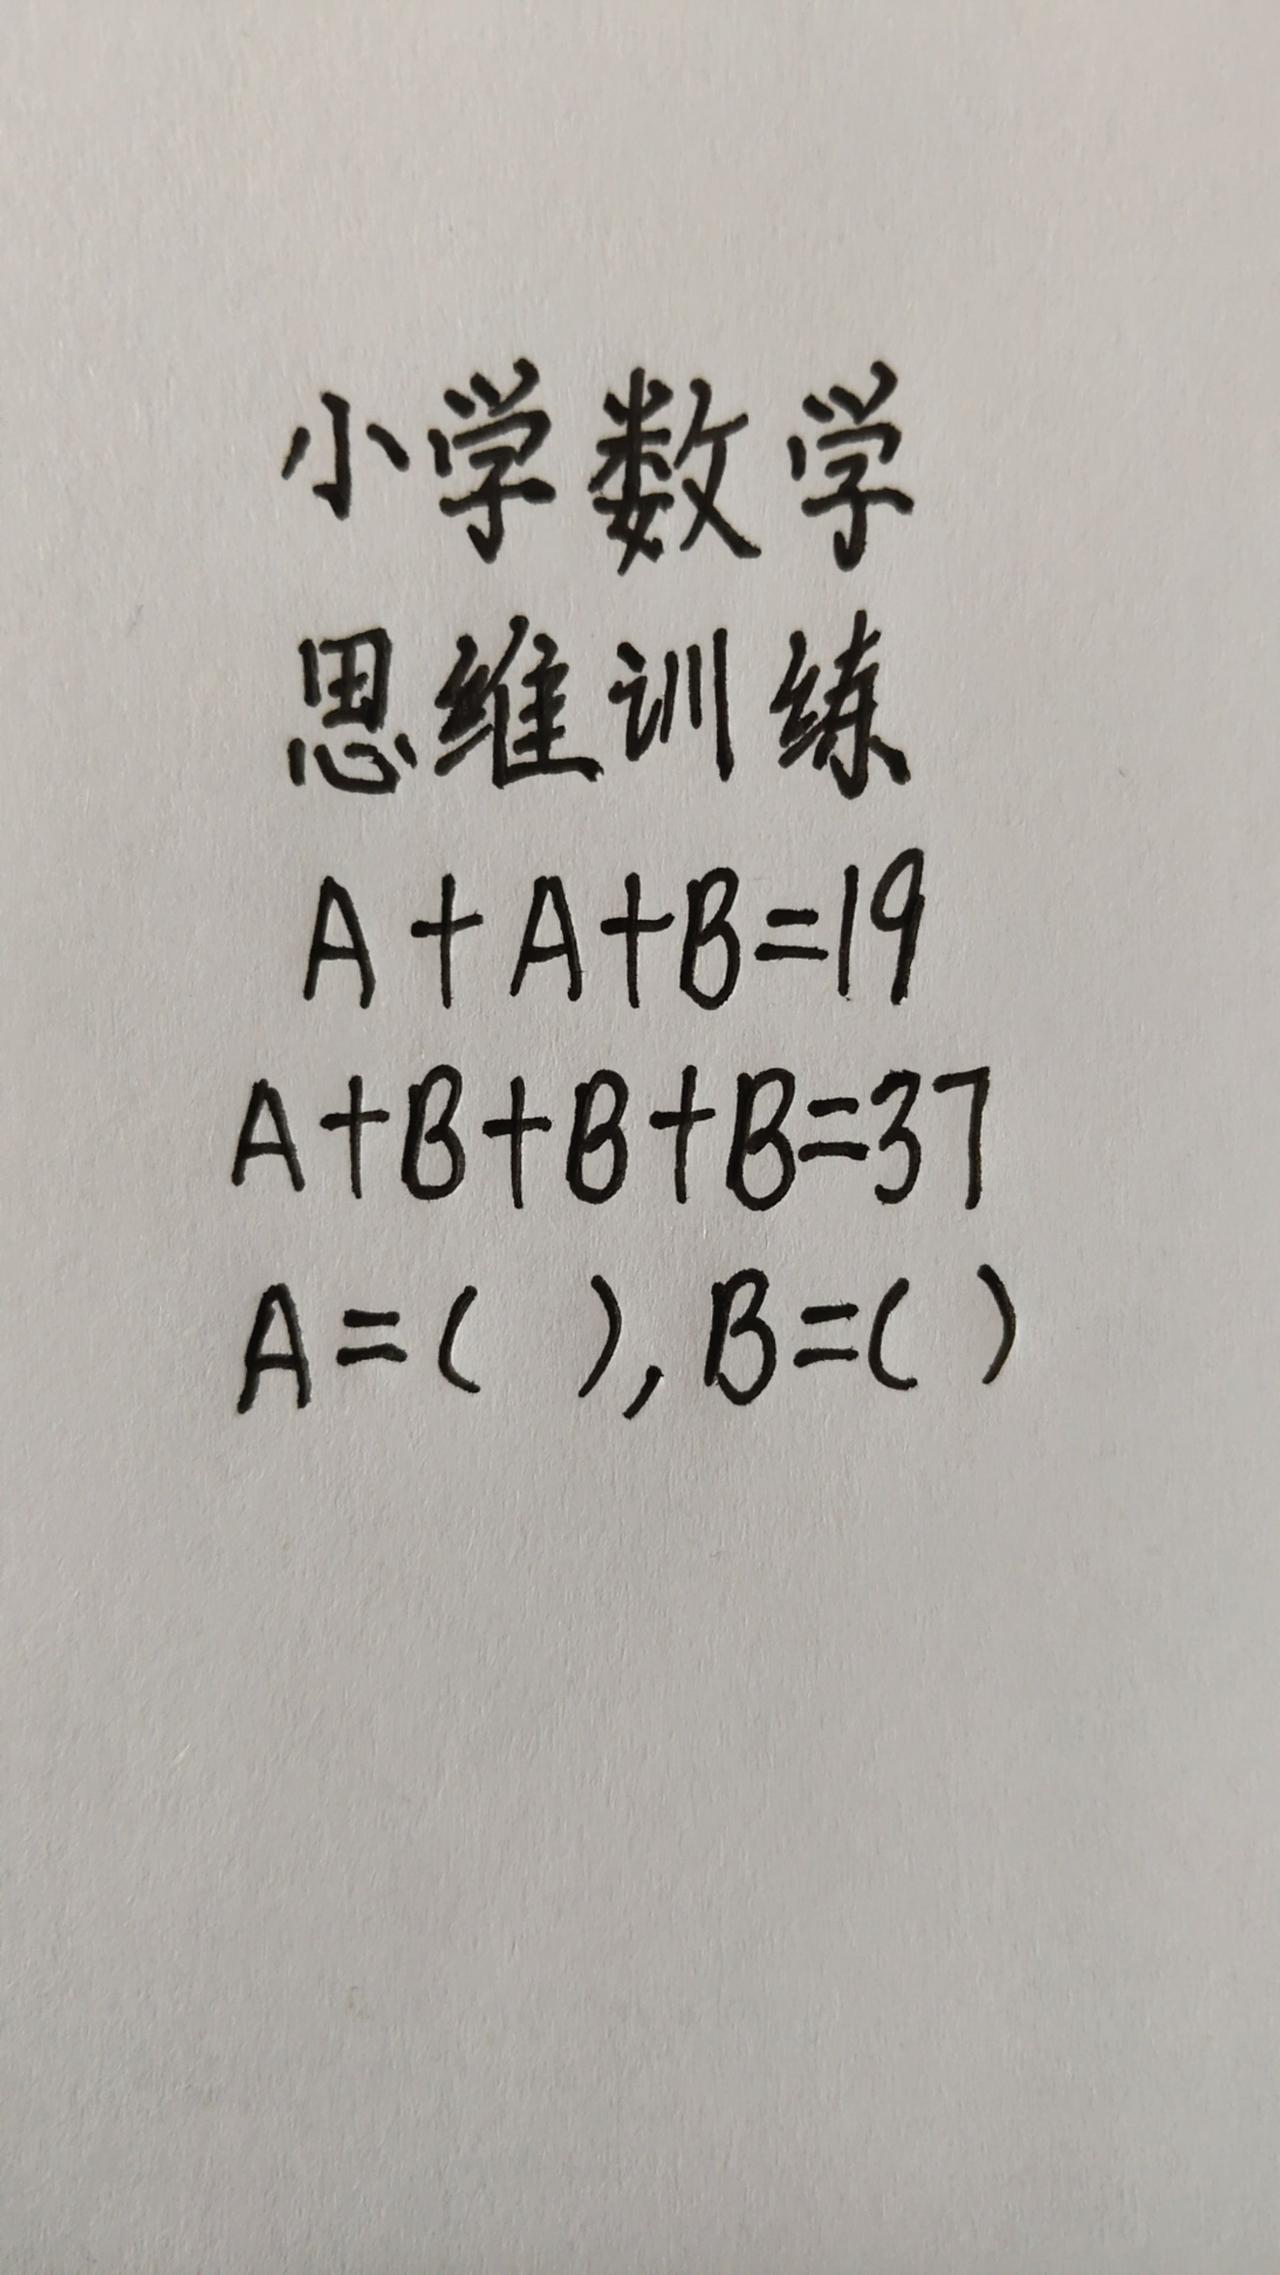 小学数学
思维训练
A+A+B=19
A+B+B+B=37
A=( ),B=( )